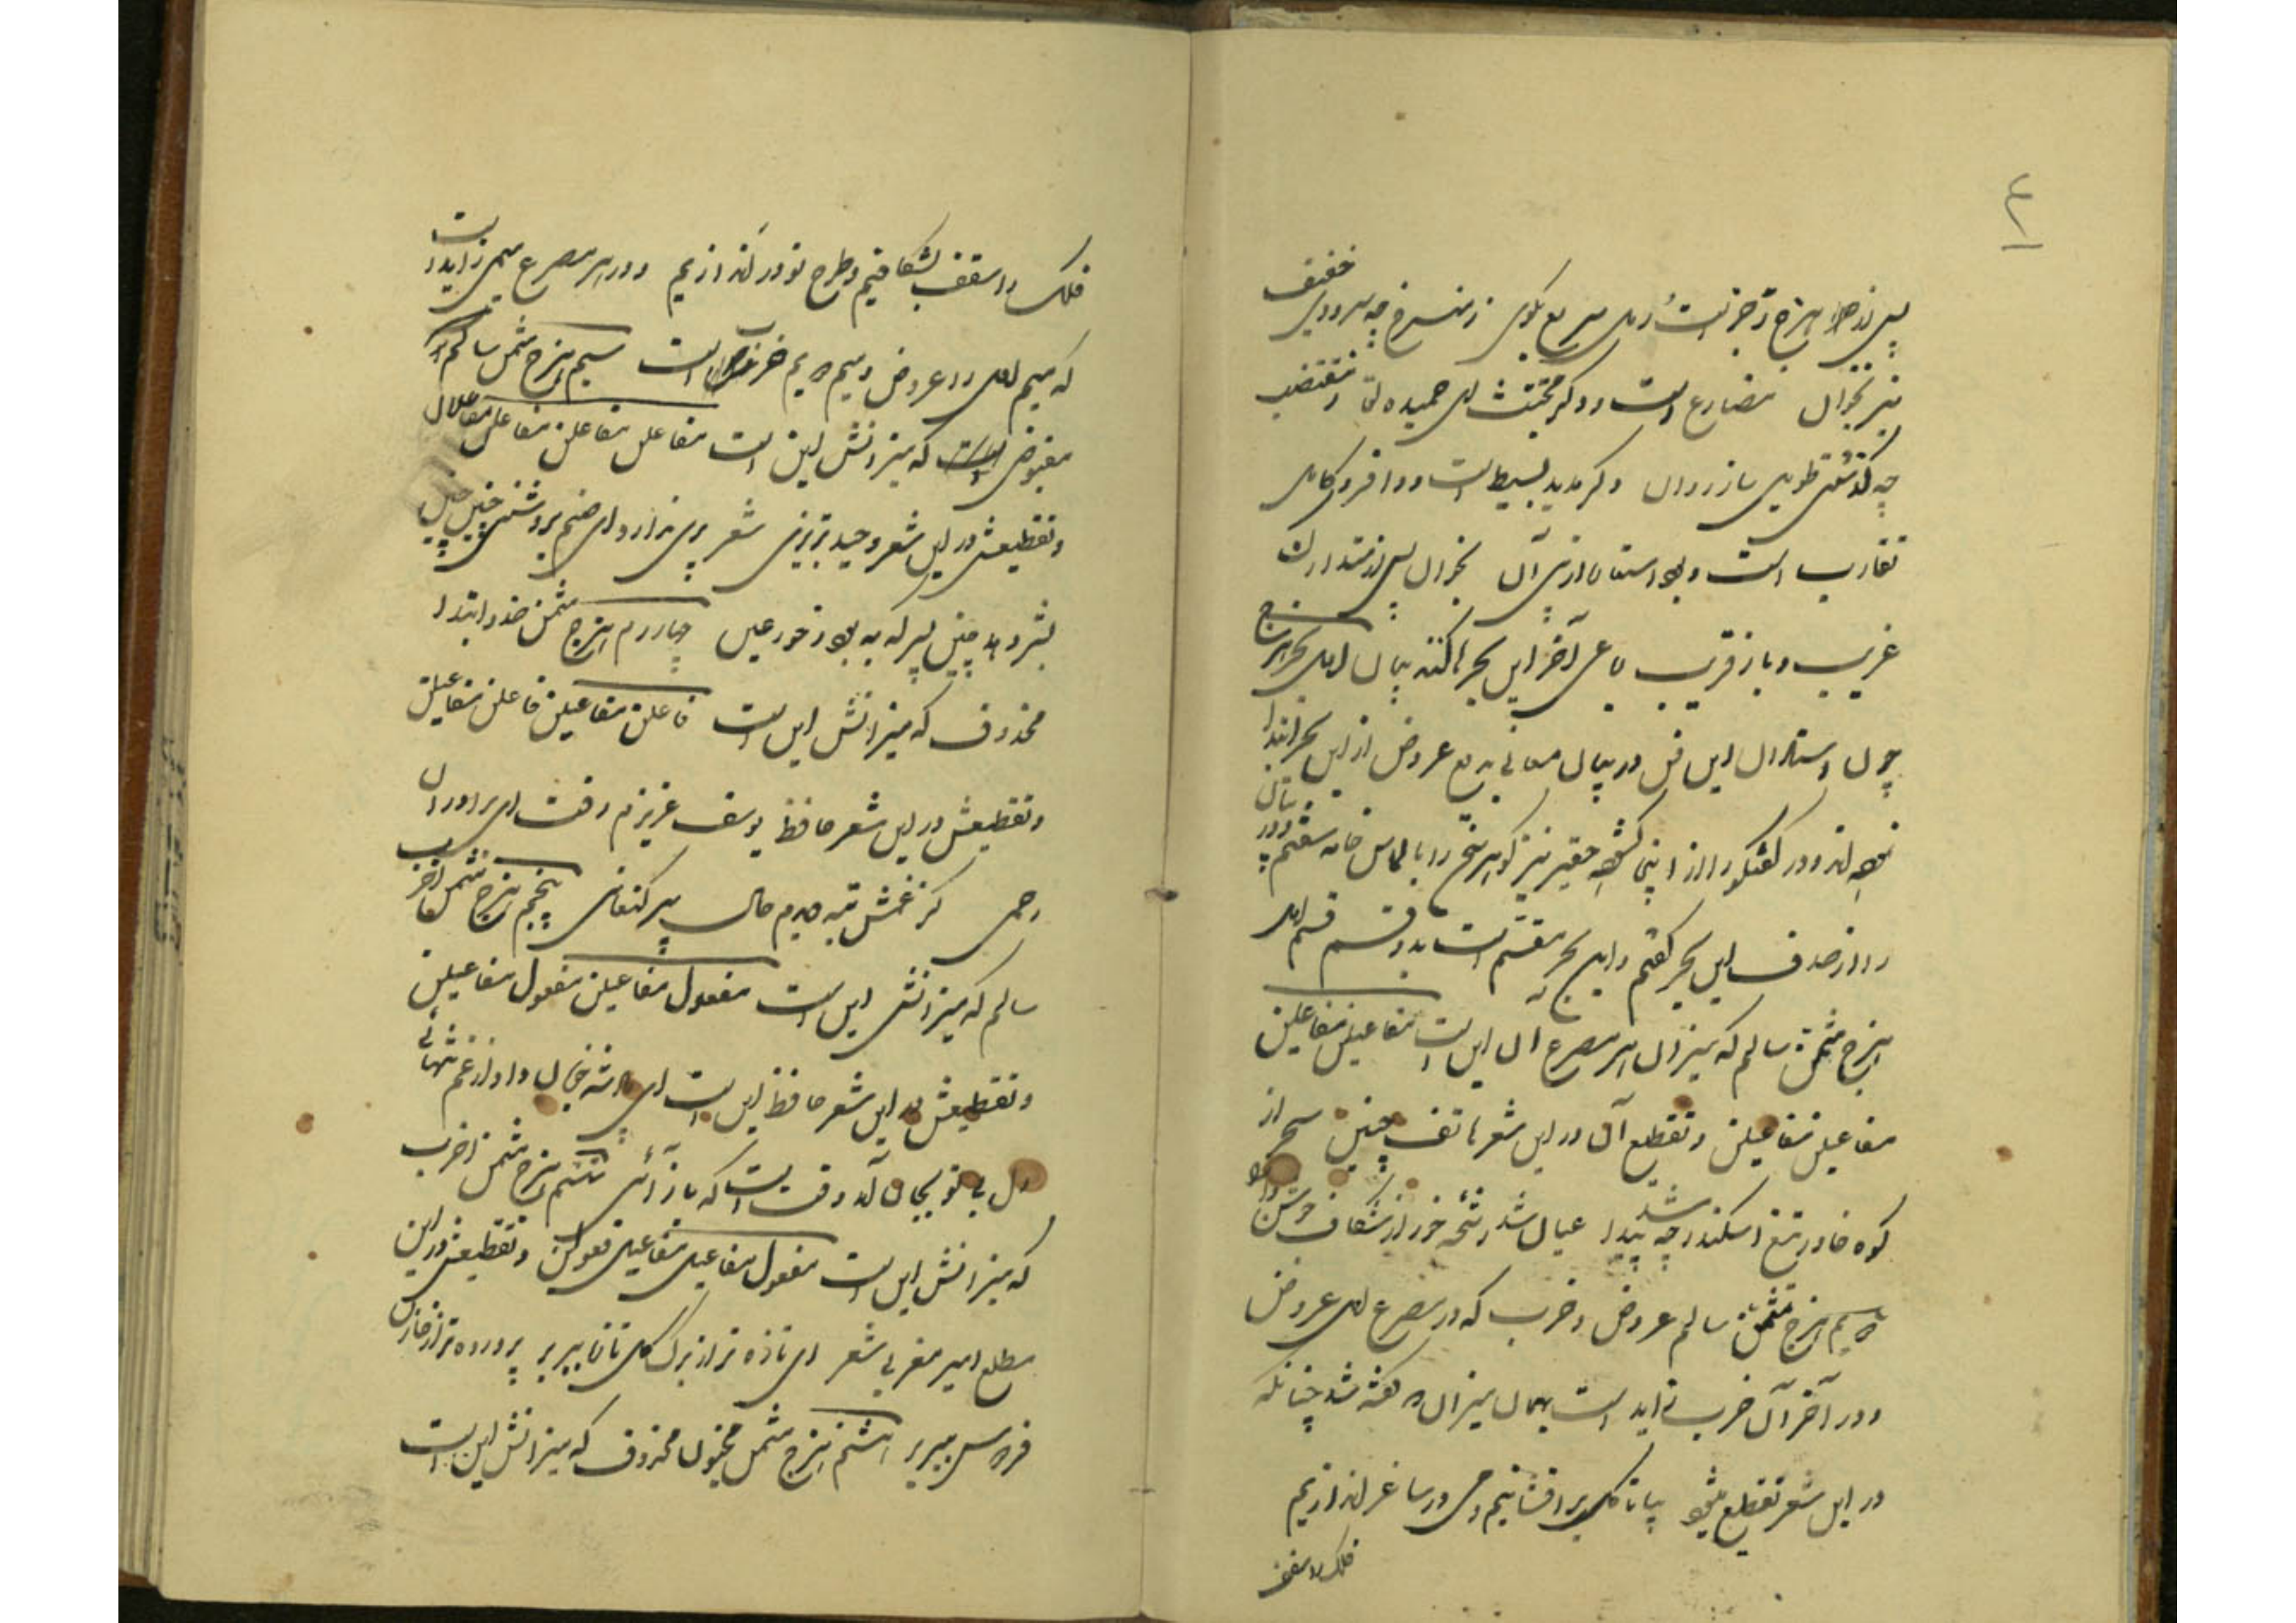 ۴
پس از هزج و رجز است رمل سریع بگوی ز منسرح چه سرودی خفیف
نیز بخوان مضارع است و دگر مجتث ای حمیده لقا و مقتضب
چه گذشتی طویل باز روان دگر مدید بسیط است و وافر و کامل
تقارب است و بود استعاد ازین آن بخوان پس از متدارک
غریب و باز قریب آخر این بحرها گفته بیان اول بحر هزج
چون استادان این فن در بیان معانی بدیع عروض از این بحر ابتدا
نموده‌اند و در گفتگو را از این گشوده حقیر نیز گوهر سخن را بالماس خامه سفتم و در
را از صدف این بحر گفتم و این بحر منقسم است به دو قسم قسم اول
هزج مثمن سالم که میزان هر مصرع آن این است مفاعیلن مفاعیلن
مفاعیلن مفاعیلن و تقطیع آن در این شعر هاتف چنین سحر از
کوه خاور تیغ اسکندر چه شد پیدا عیان شد رشحه خون از شکاف جوشن دارا
دویم هزج مثمن سالم عروض و ضرب که در مصرع اول عروض
و در آخر آن ضرب زاید است بهمان میزان که گفته شد چنانکه
در این شعر تقطیع میشود بیا تا گل برافشانیم و می در ساغر اندازیم
فلک را سقف
فلک را سقف بشکافیم و طرح نو در اندازیم و در هر مصرع میم زاید است
که میم اول را عروض و میم دویم ضرب است سیم هزج مثمن سالم
مقبوض که میزانش این است مفاعلن مفاعلن مفاعلن مفاعلان
و تقطیعش در این شعر وحید تبریزی شعر پری ندارد ای صنم بروشنی چنین جبین
بشر دهد چنین پسر که به بود ز حور عین چهارم هزج مثمن صدر و ابتدا
محذوف که میزانش این است فاعلن مفاعیلن فاعلن مفاعیلن
و تقطیعش در این شعر حافظ یوسف عزیزم رفت ای برادران
رحمی کز غمش تبه دیدم حال پیر کنعانی پنجم هزج مثمن اخرب
سالم که میزانش این است مفعول مفاعیلن مفعول مفاعیلن
و تقطیعش در این شعر حافظ این است ای پادشه خوبان داد از غم تنهائی
دل بی تو بجان آمد وقت است که باز آئی ششم هزج مثمن اخرب
که میزانش این است مفعول مفاعیل مفاعیل فعولن و تقطیعش در این
مطلع امیر معزی شعر ای تازه تر از برگ گل تازه ببر بر پرورده تر از خازن
فردوس ببر بر هشتم هزج مثمن مخبون محذوف که میزانش این است